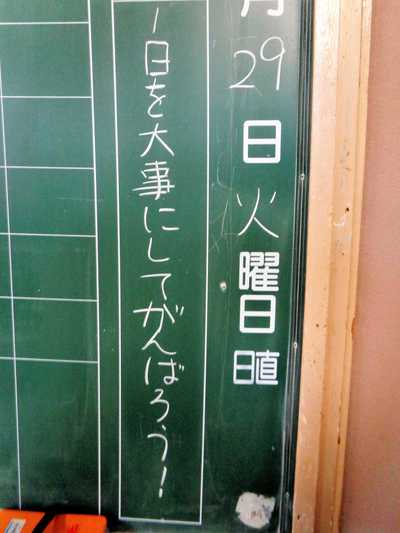 月29日火曜日
日直
1日を大事にしてがんばろう！